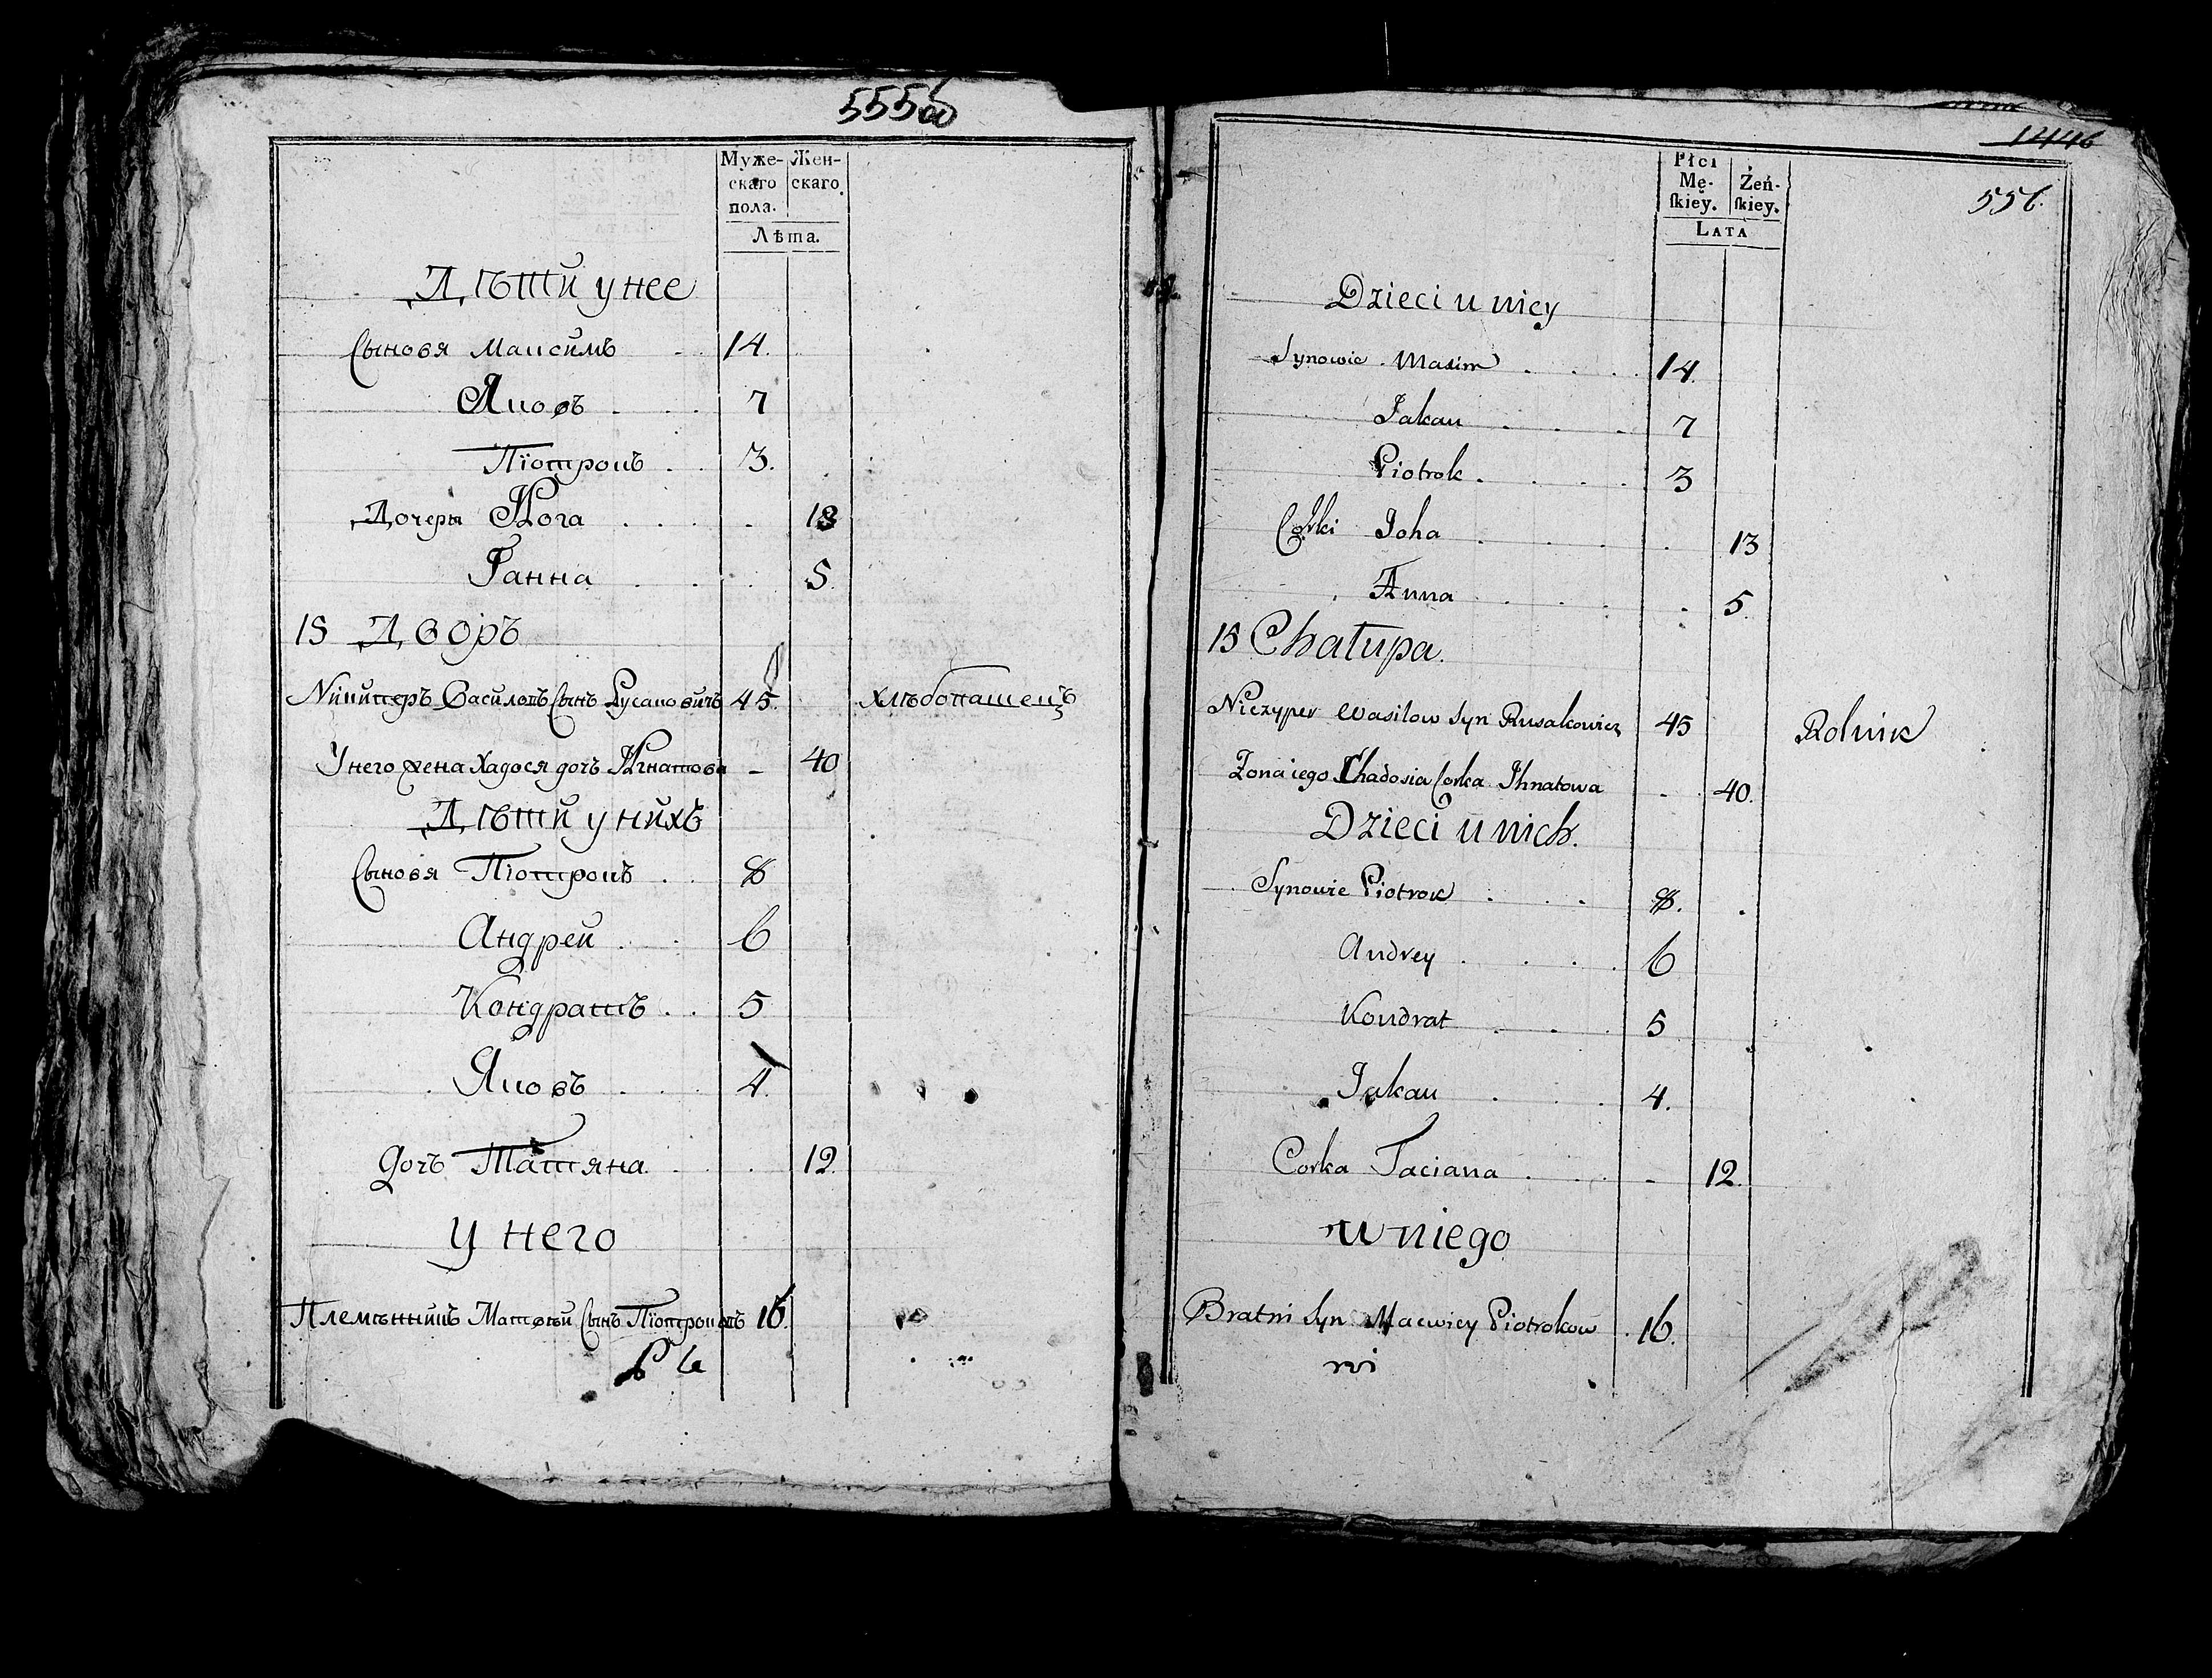 555об
Муже- Жен-
скаго скаго.
пола.
Лѣта.
Дѣти у нее
Сыновя Максимъ 14.
Яковъ 7
Піотрокъ 3.
Дочери Юга 13
Ганна 5.
15 Дворъ
Никиперъ Василовъ Сынъ Русаковичъ 45. хлѣбопашецъ
У него жена Хадося дочь Игнатова - 40
Дѣти у нихъ
Сыновя Піотрокъ 8
Андрей 6
Кондратъ 5
Яковъ 4.
дочь Татяна 12.
У него
Племѣнникъ Матвѣй Сынъ Піотроковъ 16.
1446
556.
Płci
Mę- Żeń-
ſkiey. ſkiey.
LATA
Dzieci u niey
Synowie Maxim 14.
Jakau 7
Piotrok 3
Corki Joha 13
Anna 5.
15 Chałupa.
Niczyper Wasilow Syn Rusakowicz 45 Rolnik
Zona iego Chadosia Corka Ihnatowa - 40.
Dzieci u nich.
Synowie Piotrok 8.
Andrey 6
Kondrat 5
Jakau 4.
Corka Taciana - 12.
U niego
Bratni Syn Macwiey Piotrokow 16.